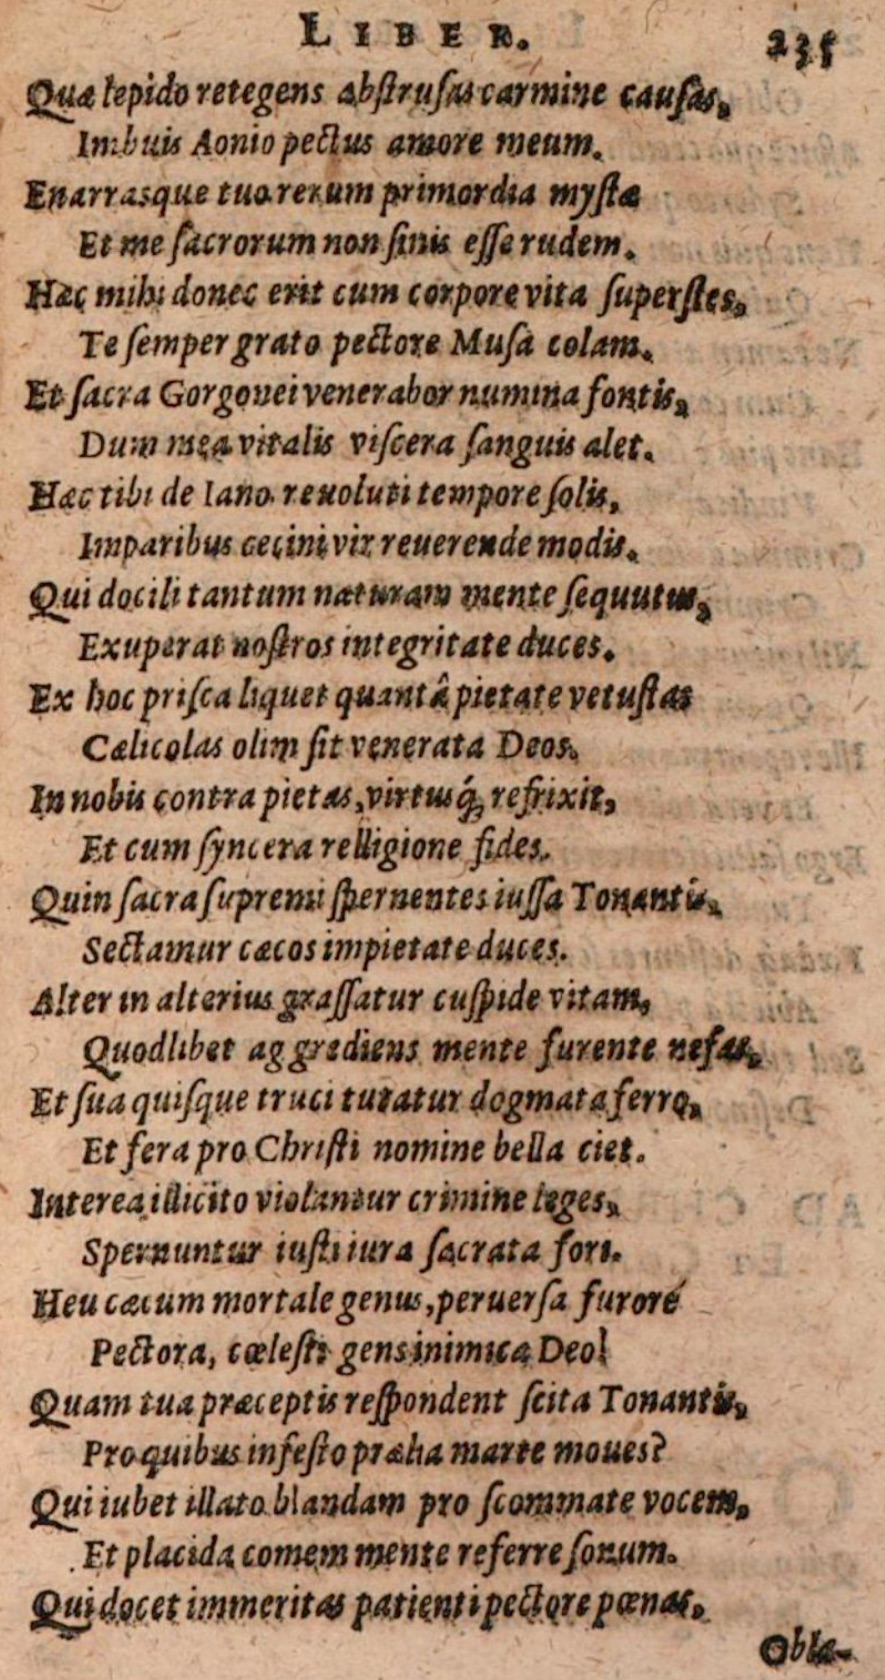 LIBER. 235
Quæ lepido retegens abstrusas carmine causas,
Imbuis Aonio pectus amore meum.
Enarrasque tuo rerum primordia mystæ
Et me sacrorum non sinis esse rudem.
Hæc mihi donec erit cum corpore vita superstes,
Te semper grato pectore Musa colam.
Et sacra Gorgonei venerabor numina fontis,
Dum mea vitalis viscera sanguis alet.
Hæc tibi de Iano revoluti tempore solis,
Imparibus cecini vir reuerende modis.
Qui docili tantum naturam mente sequutus,
Exuperat nostros integritate duces.
Ex hoc prisca liquet quantâ pietate vetustas
Cælicolas olim sit venerata Deos.
In nobis contra pietas, virtusq́; refrixit,
Et cum syncera relligione fides.
Quin sacra supremi spernentes iussa Tonantis,
Sectamur cæcos impietate duces.
Alter in alterius grassatur cuspide vitam,
Quodlibet aggrediens mente furente nefas,
Et sua quisque truci tutatur dogmata ferro,
Et fera pro Christi nomine bella ciet.
Interea illicito violantur crimine leges,
Spernuntur iusti iura sacrata fori.
Heu cæcum mortale genus, peruersa furore
Pectora, cœlesti gens inimica Deo!
Quam tua præceptis respondent scita Tonantis,
Pro quibus infesto prælia marte moues?
Qui iubet illato blandam pro scommate vocem,
Et placida comem mente referre sonum.
Qui docet immeritas patienti pectore pœnas,
Obla-